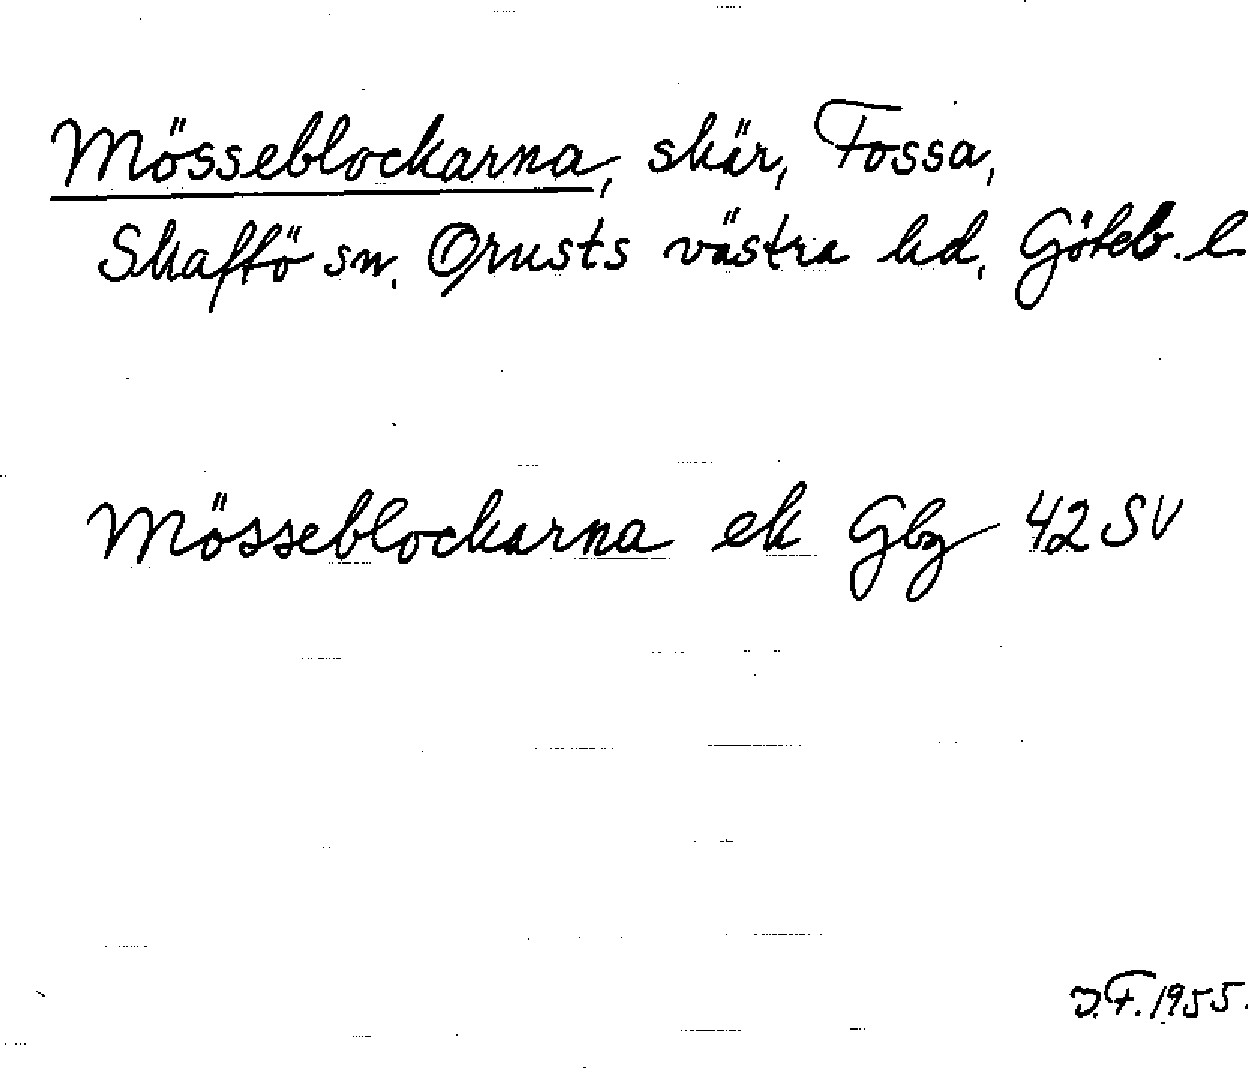 Mösseblockarna, skär, Fossa,
Skaftö sn. Orusts västra hd. Göteb. l
Mösseblockarna ek Gbg 42 SV
J.F. 1955.